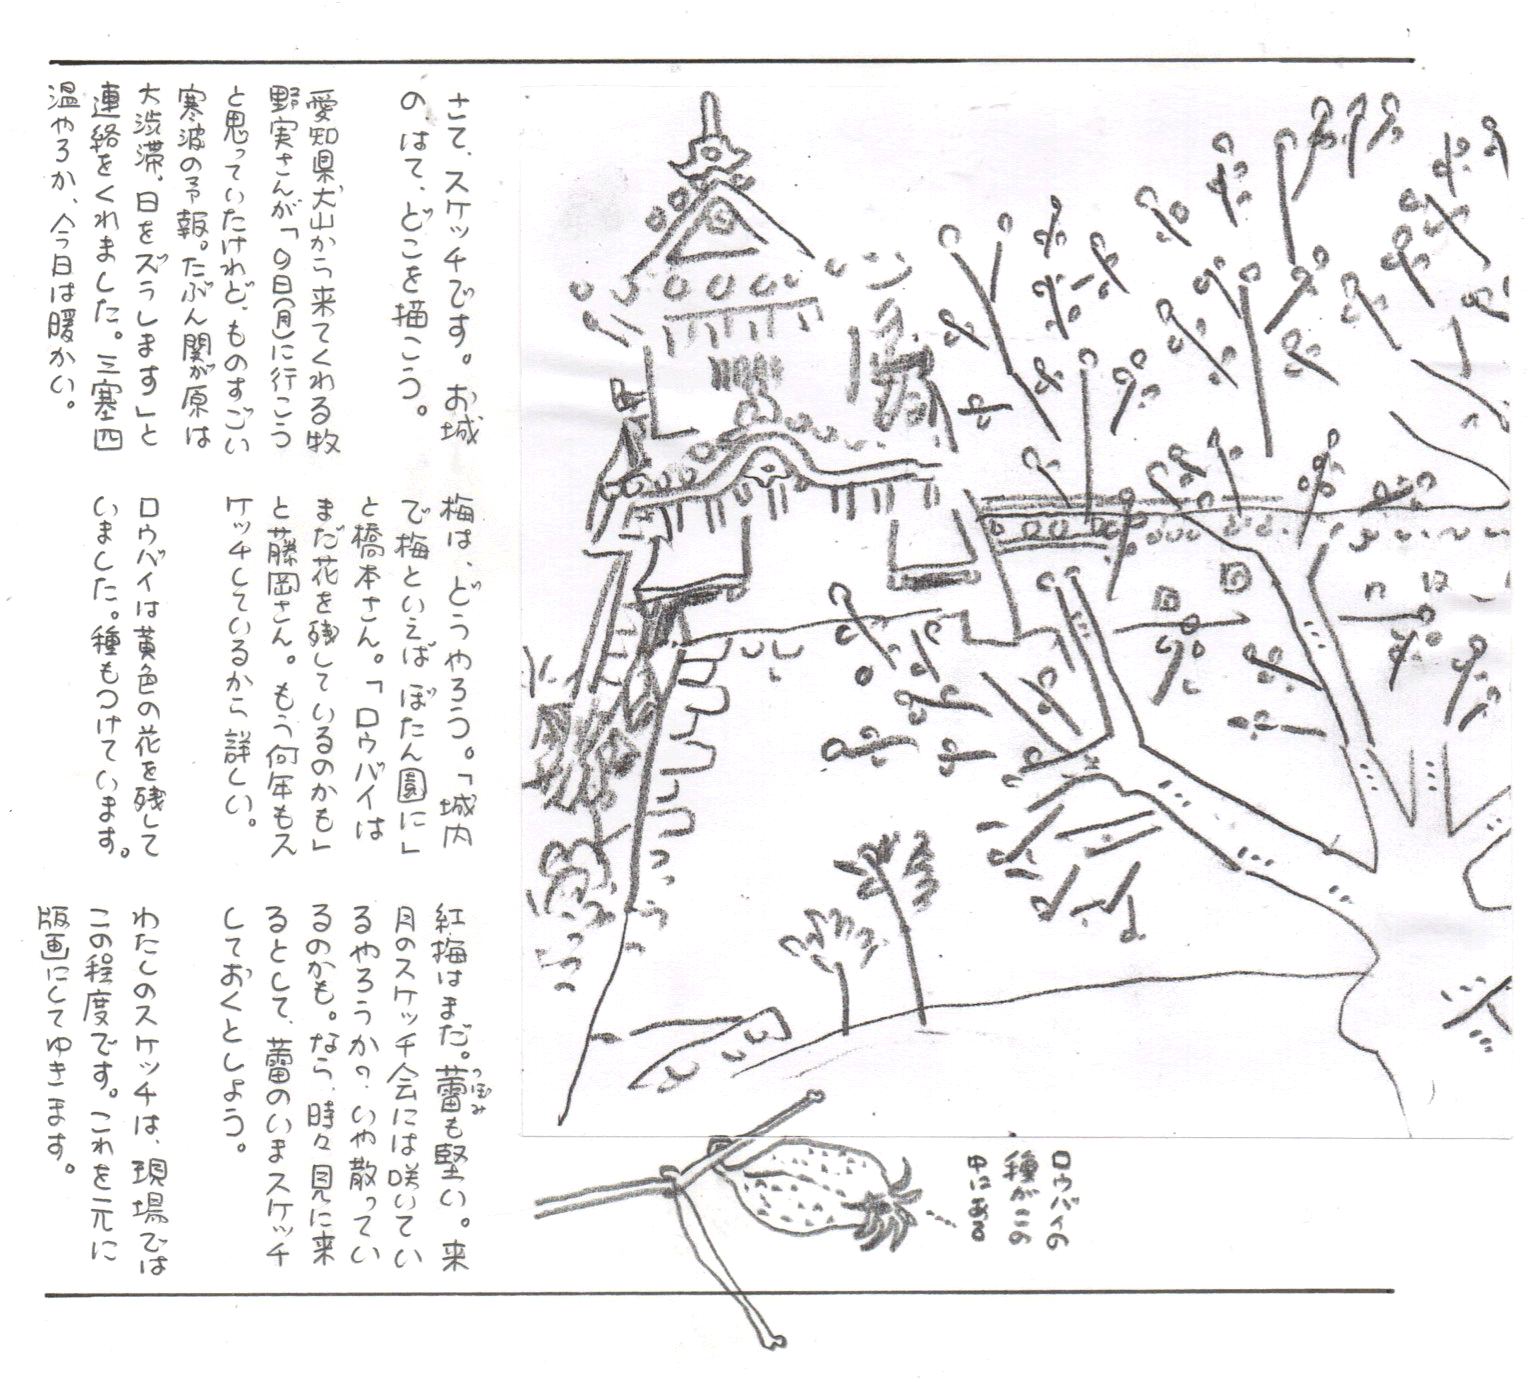 さて、スケッチです。お城
のはて、どこを描こう。
愛知県犬山から来てくれる牧
野実さんが「9日(月)に行こう
と思っていたけれど、ものすごい
寒波の予報。たぶん関が原は
大渋滞。日をズラします」と
連絡をくれました。三寒四
温やろか、今日は暖かい。
梅は、どうやろう。「城内
で梅といえばぼたん園に」
と橋本さん。「ロウバイは
まだ花を残しているのかも」
と藤岡さん。もう何年もス
ケッチしているから詳しい。
ロウバイは黄色の花を残して
いました。種もつけています。
紅梅はまだ。蕾も堅い。来
つぼみ
月のスケッチ会には咲いてい
るやろうか?いや散ってい
るのかも。なら、時々見に来
るとして、蕾のいまスケッチ
しておくとしよう。
わたしのスケッチは、現場では
この程度です。これを元に
版画にしてゆきます。
ロウバイの
種がこの
中にある